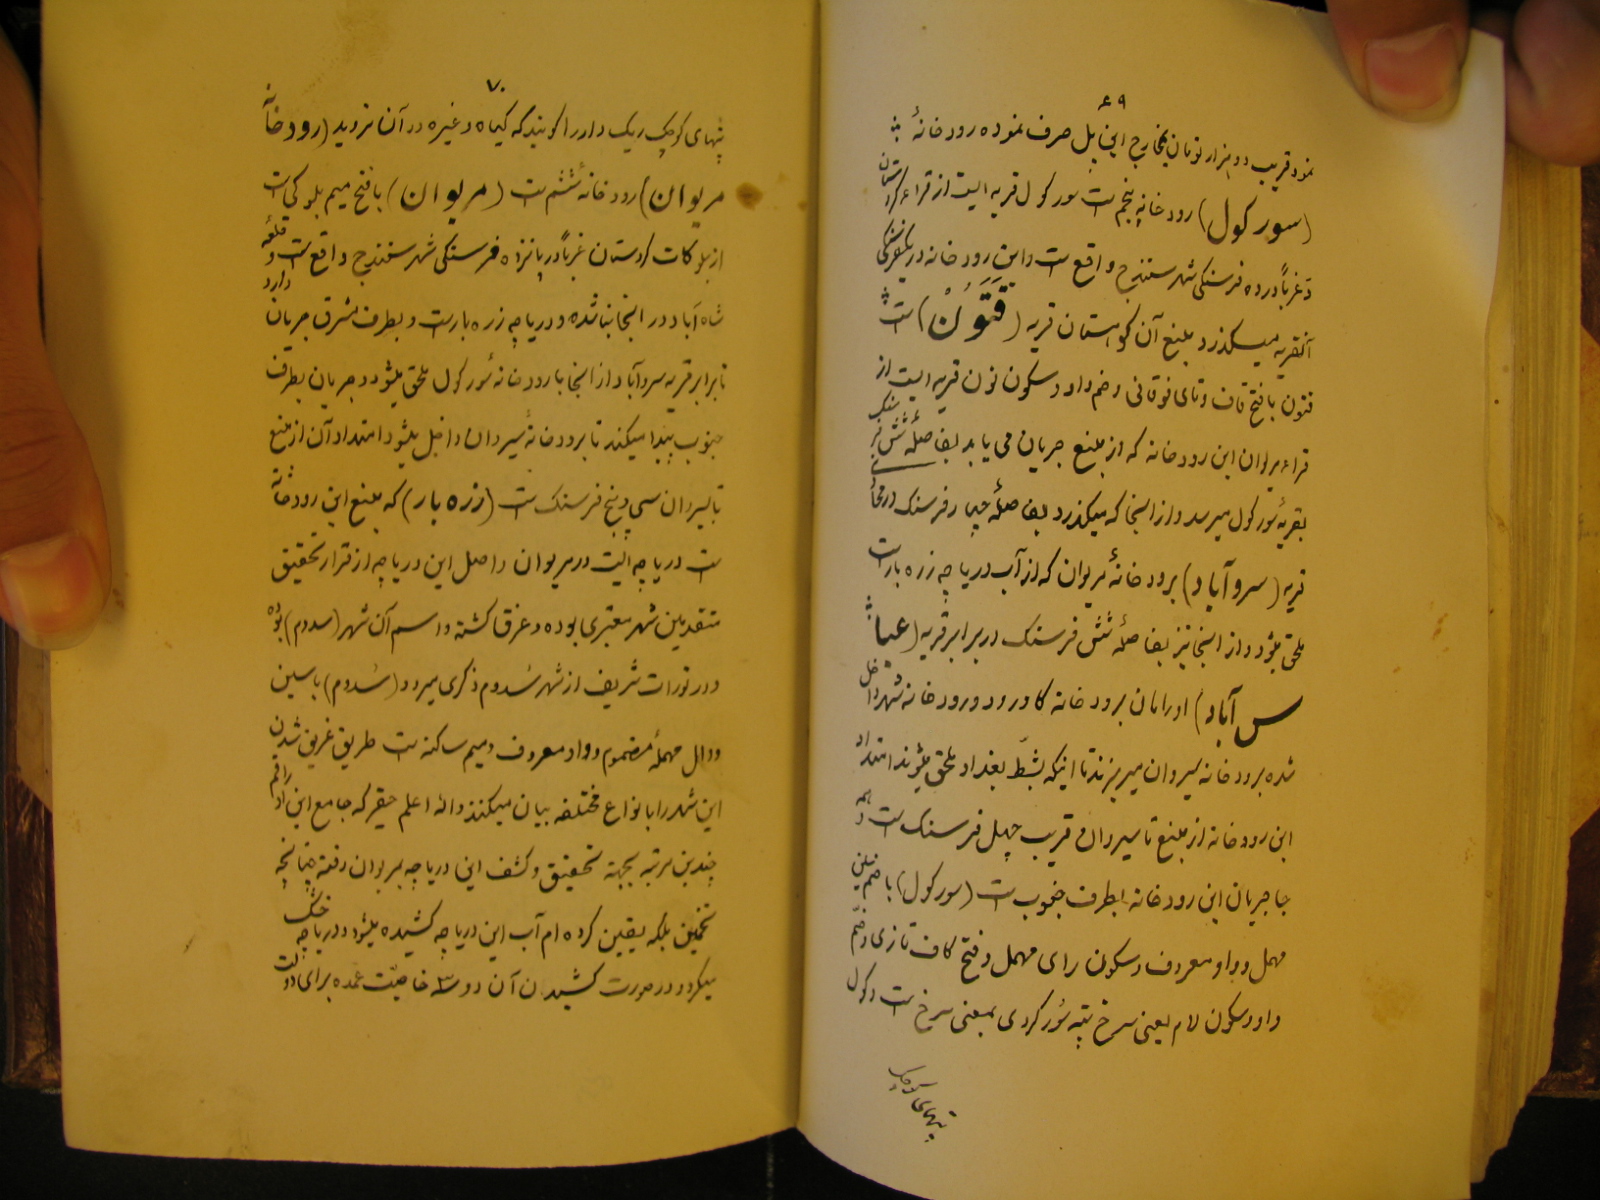 ۶۹
نمود قریب دو هزار تومان بمخارج این پل صرف نموده رودخانهٔ
(سورکول) رودخانه پنجم است سورکول قریه ایست از قراء کردستان
غرباً در ده فرسنگی شهر سنندج واقع است و این رودخانه در یکفرسنگی
آنقریه میگذرد و منبع آن کوهستان قریه (قَتَوُنْ) است
قتون بافتح قاف و تای فوقانی و ضم واو و سکون نون قریه ایست از
قراء مریوان این رودخانه که از منبع جریان می یابد بفاصلهٔ شش فرسنگ
بقریهٔ سورکول میرسد و از اینجا که میگذرد بفاصلهٔ چهار فرسنگ در محاذی
قریه (سروآباد) برودخانهٔ مریوان که از آب دریاچه زره بار است
ملحق میشود و از اینجا نیز بفاصلهٔ شش فرسنگ در برابر قریه (عبا
س آباد) اورامان برودخانه کاورود و رودخانه شهر داخل
شده برودخانه سیروان میریزند تا اینکه بشطّ بغداد ملحق میشوند امتداد
این رودخانه از منبع تا سیروان قریب چهل فرسنگ است و همه
جا جریان این رودخانه بطرف جنوب است (سورکول) با ضم سین
مهمل و واو معروف و سکون رای مهمل و فتح کاف تازی و ضمّ
واو و سکون لام یعنی سرخ تپه سُور کردی بمعنی سرخ است و کول
تپهای کوچک
۷۰
تپهای کوچک ریک دار را گویند که گیاه و غیره در آن نروید (رودخانه
مریوان) رودخانهٔ ششم است (مریوان) بافتح میم بلوکی است
از بلوکات کردستان غرباً در پانزده فرسنگی شهر سنندج واقع است و قلعهٔ
شاه آباد در اینجا بنا شده و دریاچه زره بار است و بطرف مشرق جریان دارد
تا برابر قریه سروآباد از اینجا با رودخانهٔ سورکول ملحق میشود و جریان بطرف
جنوب پیدا میکند تا برودخانهٔ سیروان داخل میشود امتداد آن از منبع
تا سیروان سی و پنج فرسنگ است (زره بار) که منبع این رودخانه
است دریاچه ایست در مریوان و اصل این دریاچه از قرار تحقیق
متقدمین شهر معتبری بوده و غرق گشته و اسم آن شهر (سدوم) بوده
و در تورات شریف از شهر سُدوم ذکری میرود (سُدوم) با سین
و دال مهملهٔ مضموم و واو معروف و میم ساکنه است طریق غریق شدن
این شهر را بانواع مختلفه بیان میکنند والله اعلم حقیر که جامع این اوراقم
چندین مرتبه بجهة تحقیق و کشف این دریاچه بمریوان رفته چنانچه
تخمین بلکه یقین کرده ام آب این دریاچه کشیده میشود و دریاچه خشک
میگردد در صورت کشیدن آن دو سه خاصیّت عمده برای دولت